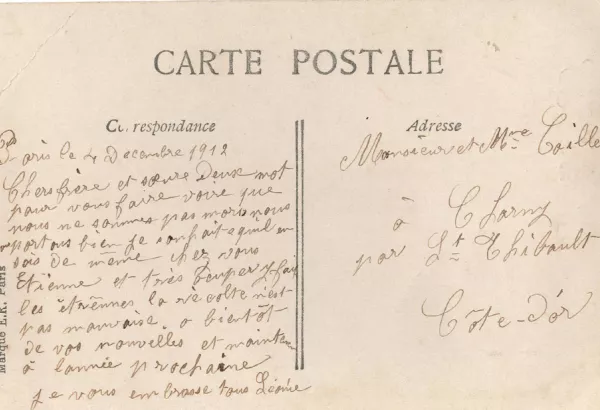 CARTE POSTALE
Correspondance
Paris le 4 Decembre 1912
Chers frère et sœure Deux mot
pour vous faire voire que
nous ne sommes pas mors nous
portons bien je souhaite qu'il en
sois de même chez vous
Etienne et très
les étrennes la récolte n'est
pas mauvaise. a bientôt
de vos nouvelles et
à l'année prochaine
je vous embrasse tous Léonie
Marque E.R. Paris
Adresse
Monsieur et Mme
à Charny
par St Thibault
Côte-d'or